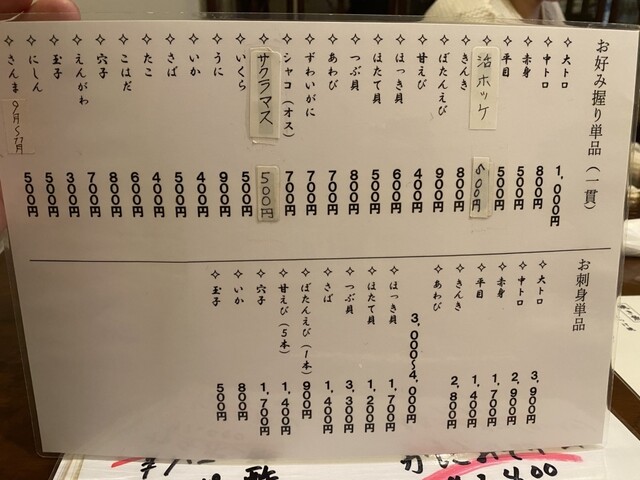 お好み握り単品（一貫）
✧大トロ 1,000円
✧中トロ 800円
✧赤身 500円
✧平目 500円
活ホッケ 500円
✧きんき 800円
✧ぼたんえび 900円
✧甘えび 400円
✧ほっき貝 600円
✧ほたて貝 500円
✧つぶ貝 800円
✧あわび 700円
✧ずわいがに 700円
✧シャコ（オス） 700円
✧サクラマス 500円
✧いくら 500円
✧うに 900円
✧いか 400円
✧さば 500円
✧たこ 400円
✧こはだ 600円
✧穴子 800円
✧えんがわ 700円
✧玉子 300円
✧にしん 500円
✧さんま 9月〜11月 500円
お刺身単品
✧大トロ 3,900円
✧中トロ 2,900円
✧赤身 1,700円
✧平目 1,400円
✧きんき 2,800円
✧あわび 3,000〜4,000円
✧ほっき貝 1,700円
✧ほたて貝 1,200円
✧つぶ貝 3,300円
✧さば 1,400円
✧ぼたんえび（1本） 900円
✧甘えび（5本） 1,400円
✧穴子 1,700円
✧いか 800円
✧玉子 500円